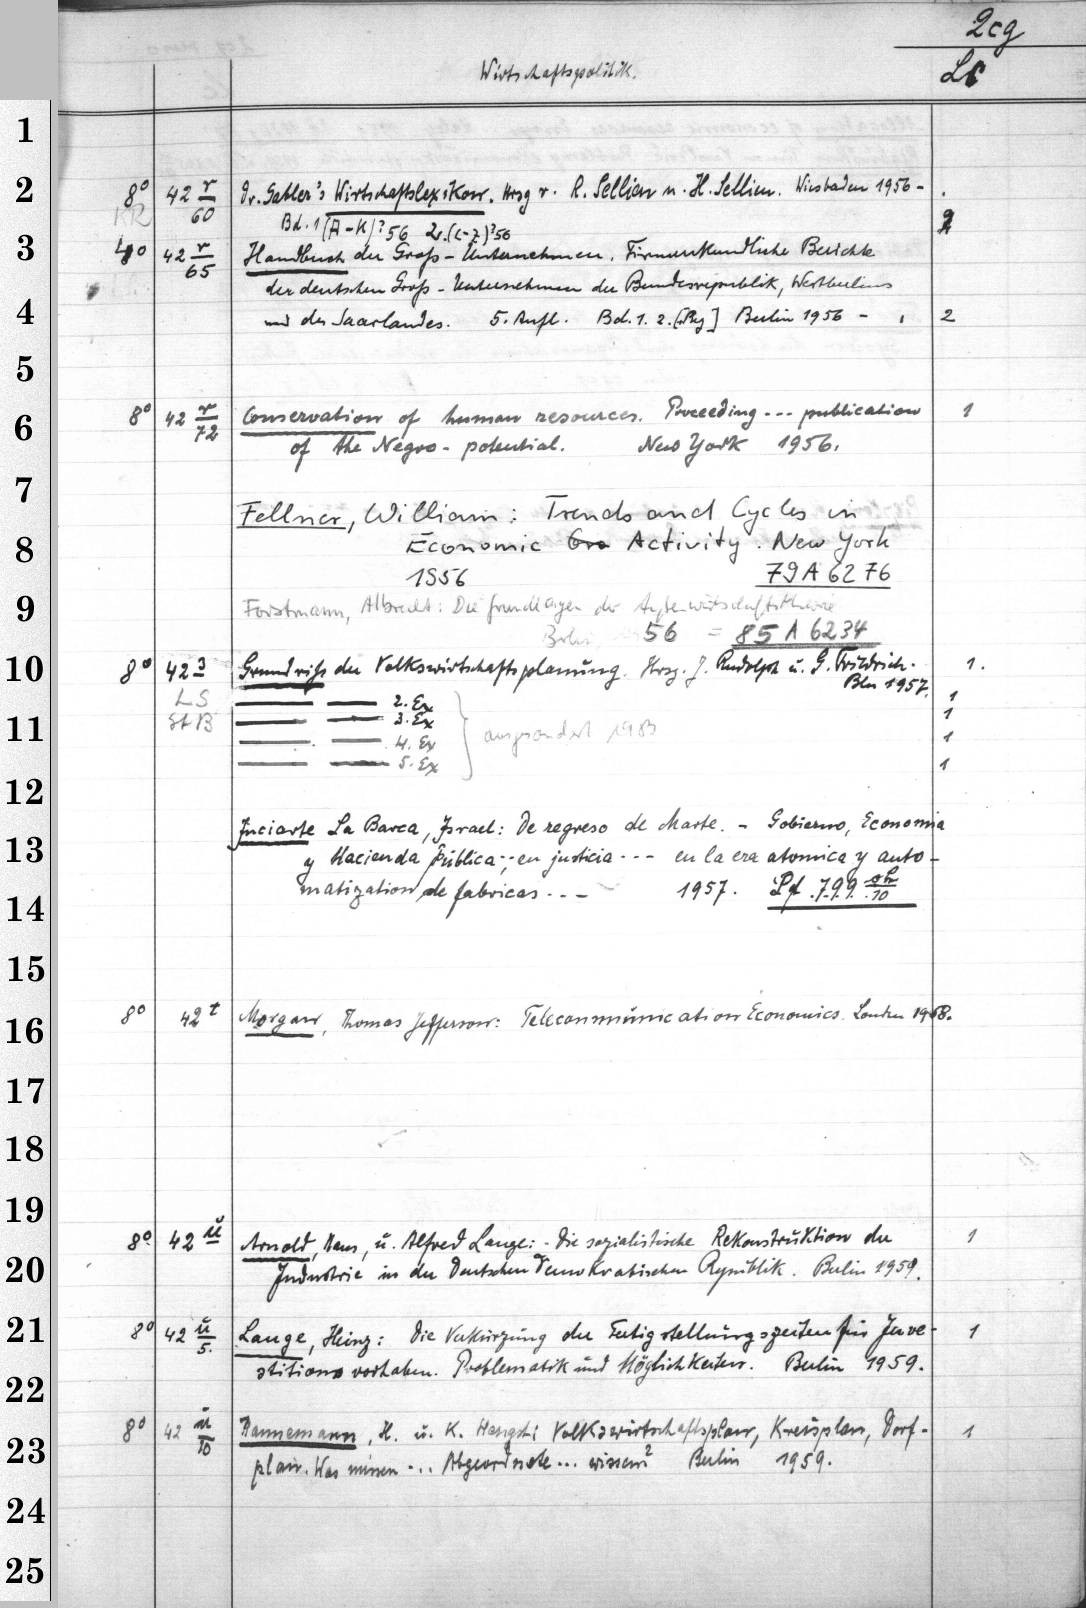 2cg
Wirtschaftspolitik. Ls
1
2 8° 42 r/60 Dr. Gabler's Wirtschaftslexikon. Hrsg v. R. Sellien u. H. Sellien. Wiesbaden 1956 - .
KR Bd. 1 (A-K)² 56 2. (L-Z)² 56 2
3 4° 42 r/65 Handbuch der Groß-Unternehmen. Firmenkundliche Berichte
der deutschen Groß-Unternehmen der Bundesrepublik, Westberlins
4 und des Saarlandes. 5. Aufl. Bd. 1. 2. Berlin 1956 - . 2
5
6 8° 42 r/72 Conservation of human resources. Proceeding --- publication 1
of the Negro-potential. New York 1956.
7 Fellner, William: Trends and Cycles in
8 Economic Activity. New York
1956 79 A 6276
9 Forstmann, Albrecht: Die Grundlagen der Außenwirtschaftstheorie
Berlin 56 = 85 A 6234
10 8° 42 s Grundriß der Volkswirtschaftsplanung. Hrsg. J. Rudolph u. G. Friedrich. 1.
Bln 1957.
LS — — 2. Ex 1
11 St B — — 3. Ex 1
— — 4. Ex ausgesondert 1983 1
— — 5. Ex 1
12
13 Inciarte La Barca, Israel: De regreso de Marte. - Gobierno, Economia
y Hacienda Pública --, en justicia --- en la era atomica y auto-
14 matization de fabricas --- 1957. 799 /10
15
16 8° 42 t Morgan, Thomas Jefferson: Telecommunication Economics. London 1958.
17
18
19
20 8° 42 u Arnold, Hans, u. Alfred Lange: Die sozialistische Rekonstruktion der 1
Industrie in der Deutschen Demokratischen Republik. Berlin 1959.
21 8° 42 u/5. Lange, Heinz: Die Verkürzung der Fertigstellungszeiten für Inve- 1
22 stitionsvorhaben. Problematik und Möglichkeiten. Berlin 1959.
23 8° 42 u/10 Dannemann, H. u. K. Hengst: Volkswirtschaftsplan, Kreisplan, Dorf- 1
plan. Was müssen ... Abgeordnete ... wissen? Berlin 1959.
24
25